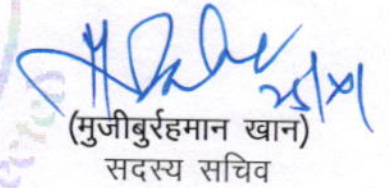 25/XI
(मुजीबुर्रहमान खान)
सदस्य सचिव